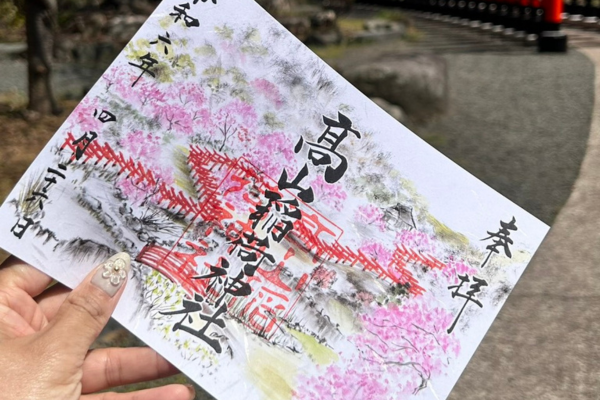 奉拝
高山稲荷神社
令和六年 四月二十六日